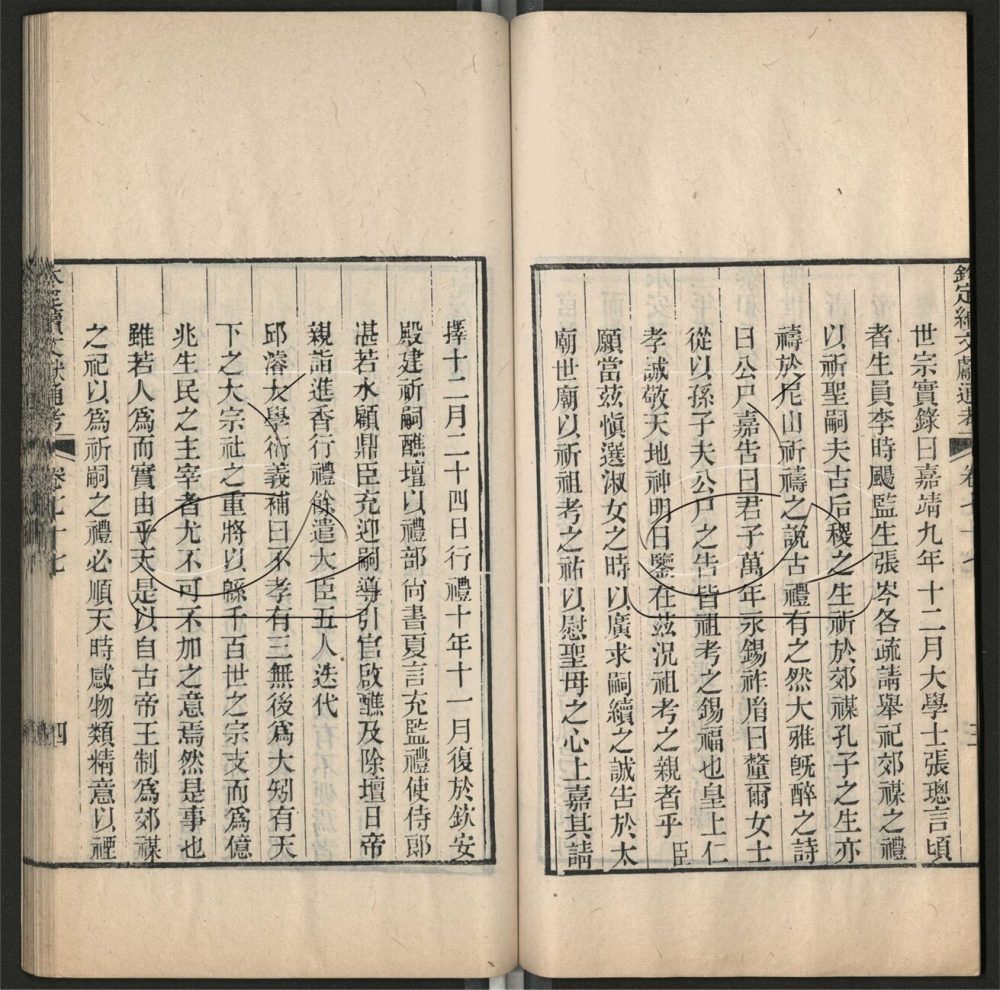 欽定續文獻通考 卷七十七 三
世宗實錄曰嘉靖九年十二月大學士張璁言頃
者生員李時颺監生張岑各疏請舉祀郊禖之禮
以祈聖嗣夫古后稷之生祈於郊禖孔子之生亦
禱於尼山祈禱之說古禮有之然大雅旣醉之詩
曰公尸嘉告曰君子萬年永錫祚胤曰釐爾女士
從以孫子夫公尸之告皆祖考之錫福也皇上仁
孝誠敬天地神明日鑒在茲況祖考之親者乎臣
願當茲慎選淑女之時以廣求嗣續之誠告於太
廟世廟以祈祖考之祐以慰聖母之心上嘉其請
擇十二月二十四日行禮十年十一月復於欽安
殿建祈嗣醮壇以禮部尙書夏言充監禮使侍郞
湛若水顧鼎臣充迎嗣導引官啟醮及除壇日帝
親詣進香行禮餘遣大臣五人迭代
邱濬大學衍義補曰不孝有三無後爲大矧有天
下之大宗社之重將以緜千百世之宗支而爲億
兆生民之主宰者尤不可不加之意焉然是事也
雖若人爲而實由乎天是以自古帝王制爲郊禖
之祀以爲祈嗣之禮必順天時感物類精意以禋
欽定續文獻通考 卷七十七 四